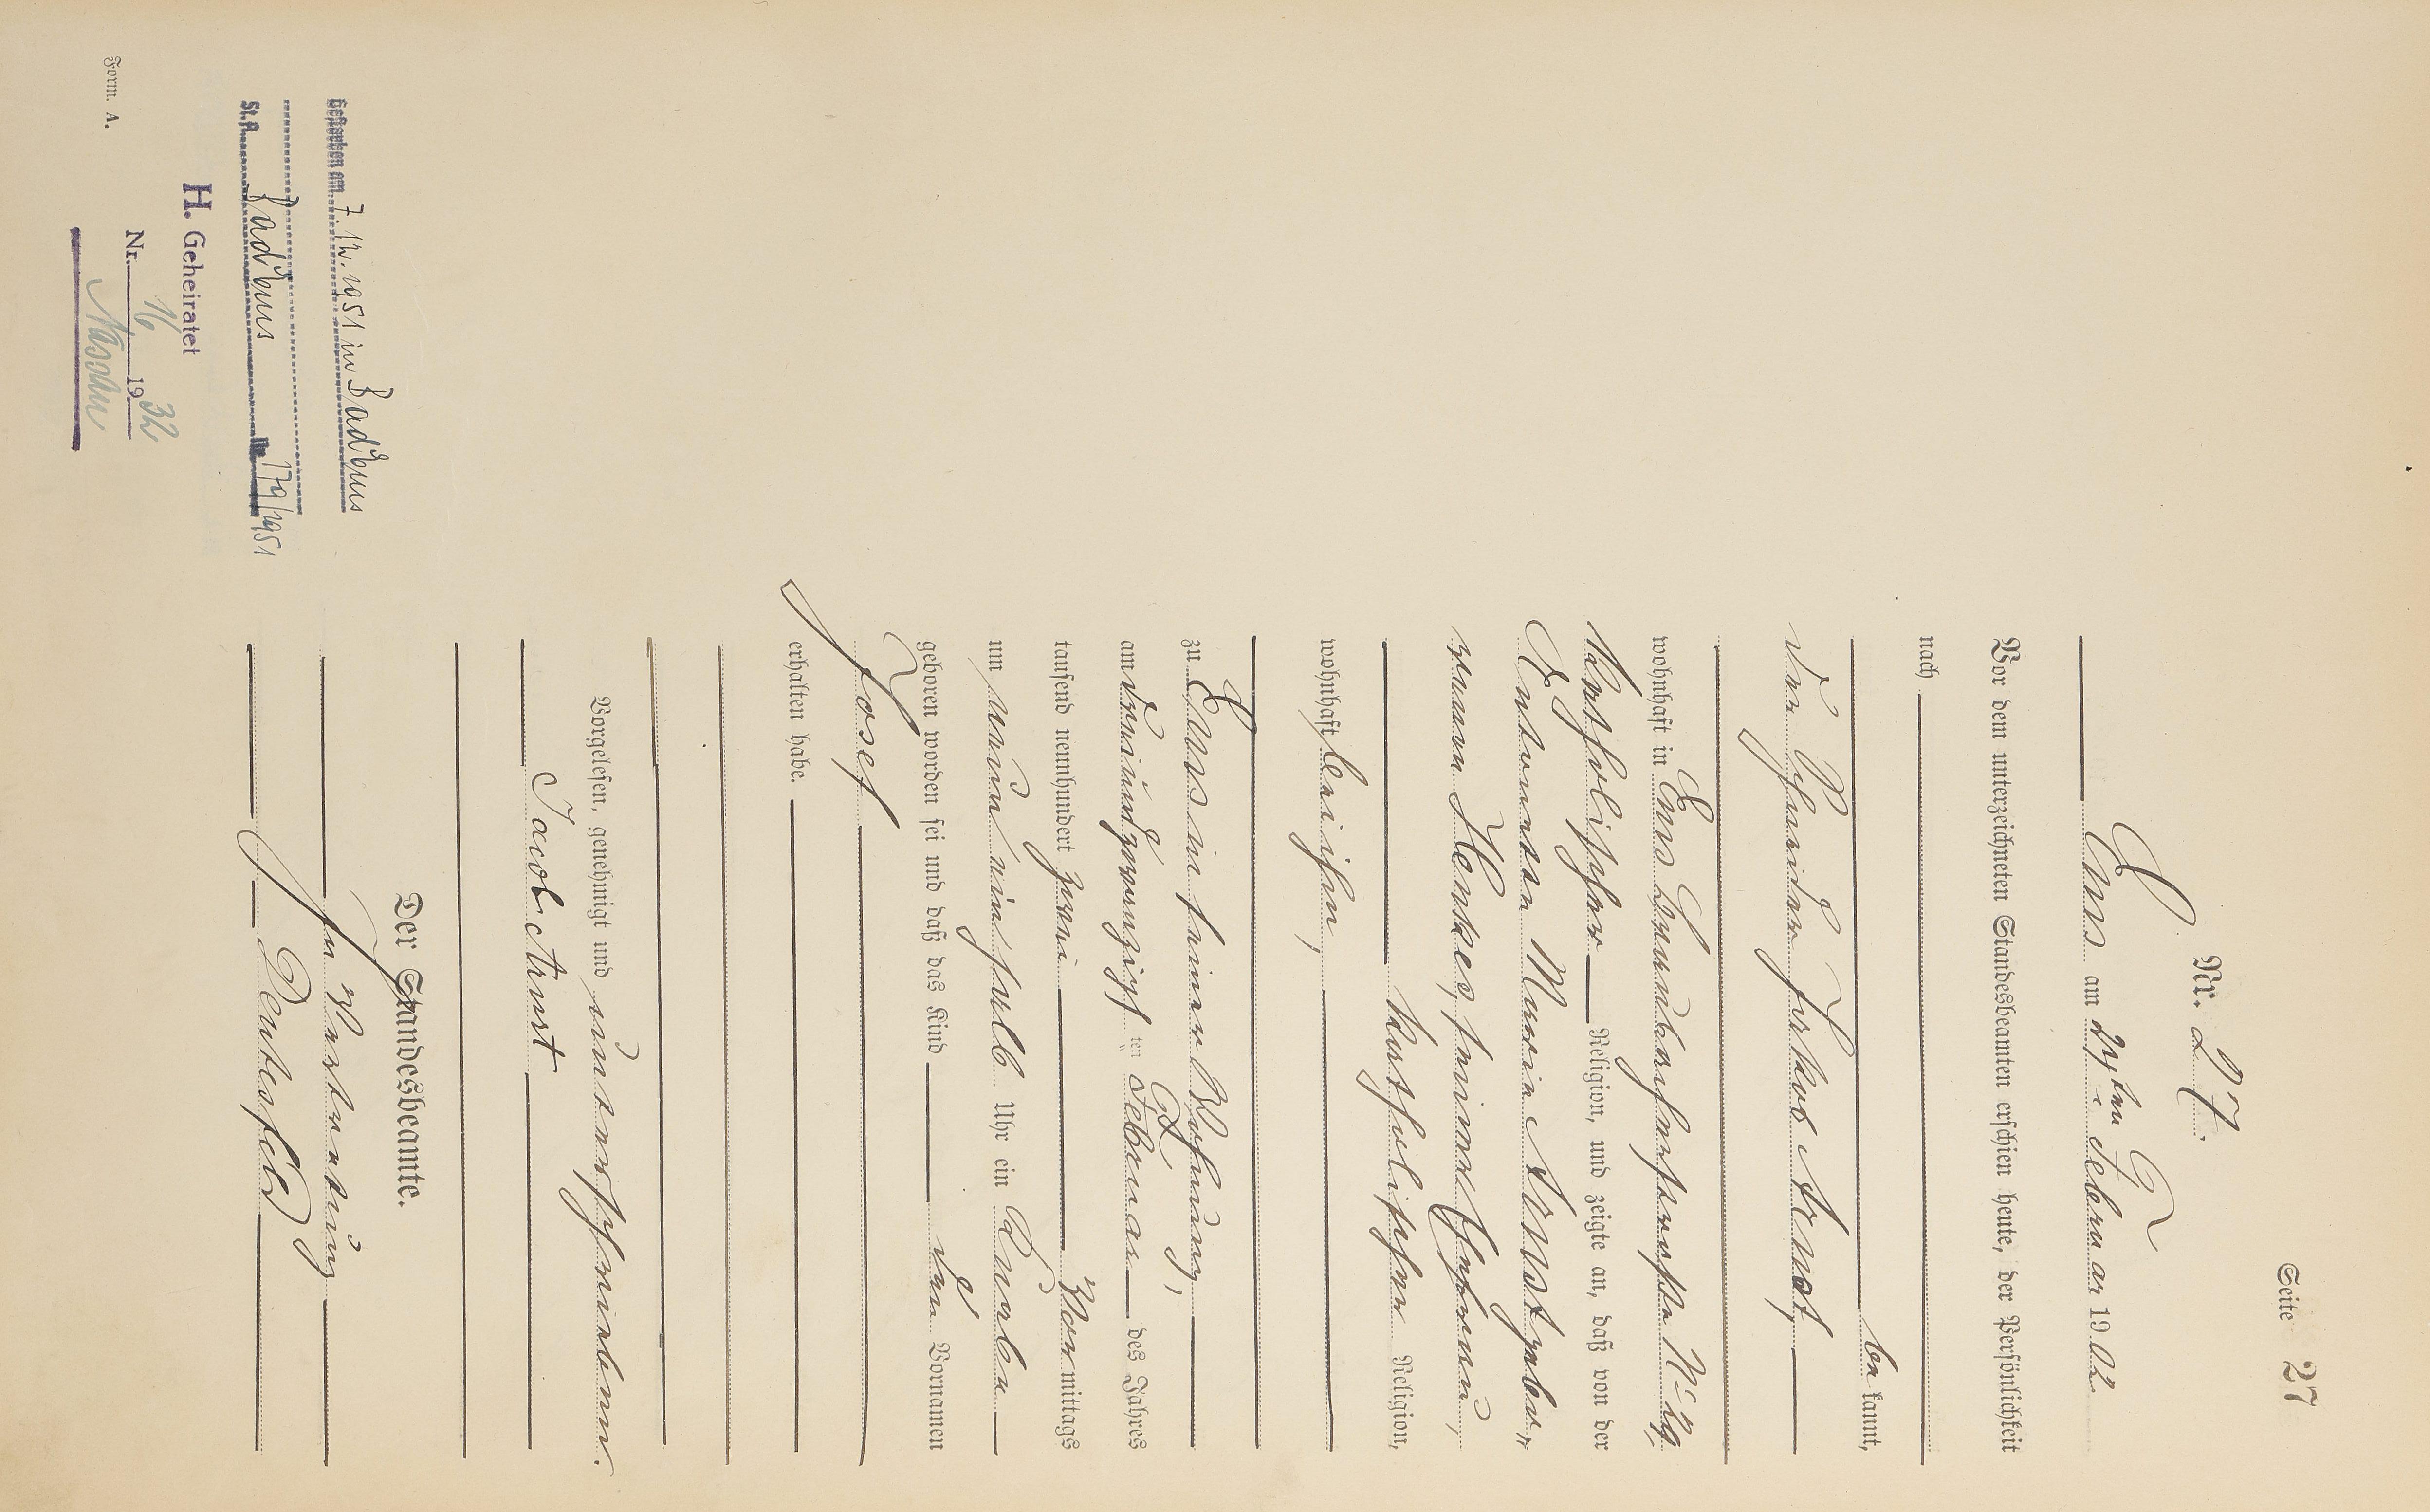 Seite 27
Nr. 27.
Ems am 27ten Februar 1902
Vor dem unterzeichneten Standesbeamten erschien heute, der Persönlichkeit
nach
bekannt,
der Schneider Jakob Arnst,
wohnhaft in Ems
katholischer Religion, und zeigte an, daß von der
Antonetta Maria Arnst, gebo-
renen Henkes, seiner Ehefrau,
katholischer Religion,
wohnhaft bei ihm,
zu Ems in seiner Wohnung,
am dreiundzwanzigsten Februar des Jahres
tausend neunhundert zwei Vormittags
um neun ein halb Uhr ein Knabe
geboren worden sei und daß das Kind den Vornamen
Josef
erhalten habe.
Vorgelesen, genehmigt und unterschrieben.
Jacob Arnst
Der Standesbeamte.
In Vertretung
Gestorben am 7.12.1951 in Bad Ems
St.A. Bad Ems Nr. 179/1951
H. Geheiratet
Nr. 16 1932
Nassau
Form. A.